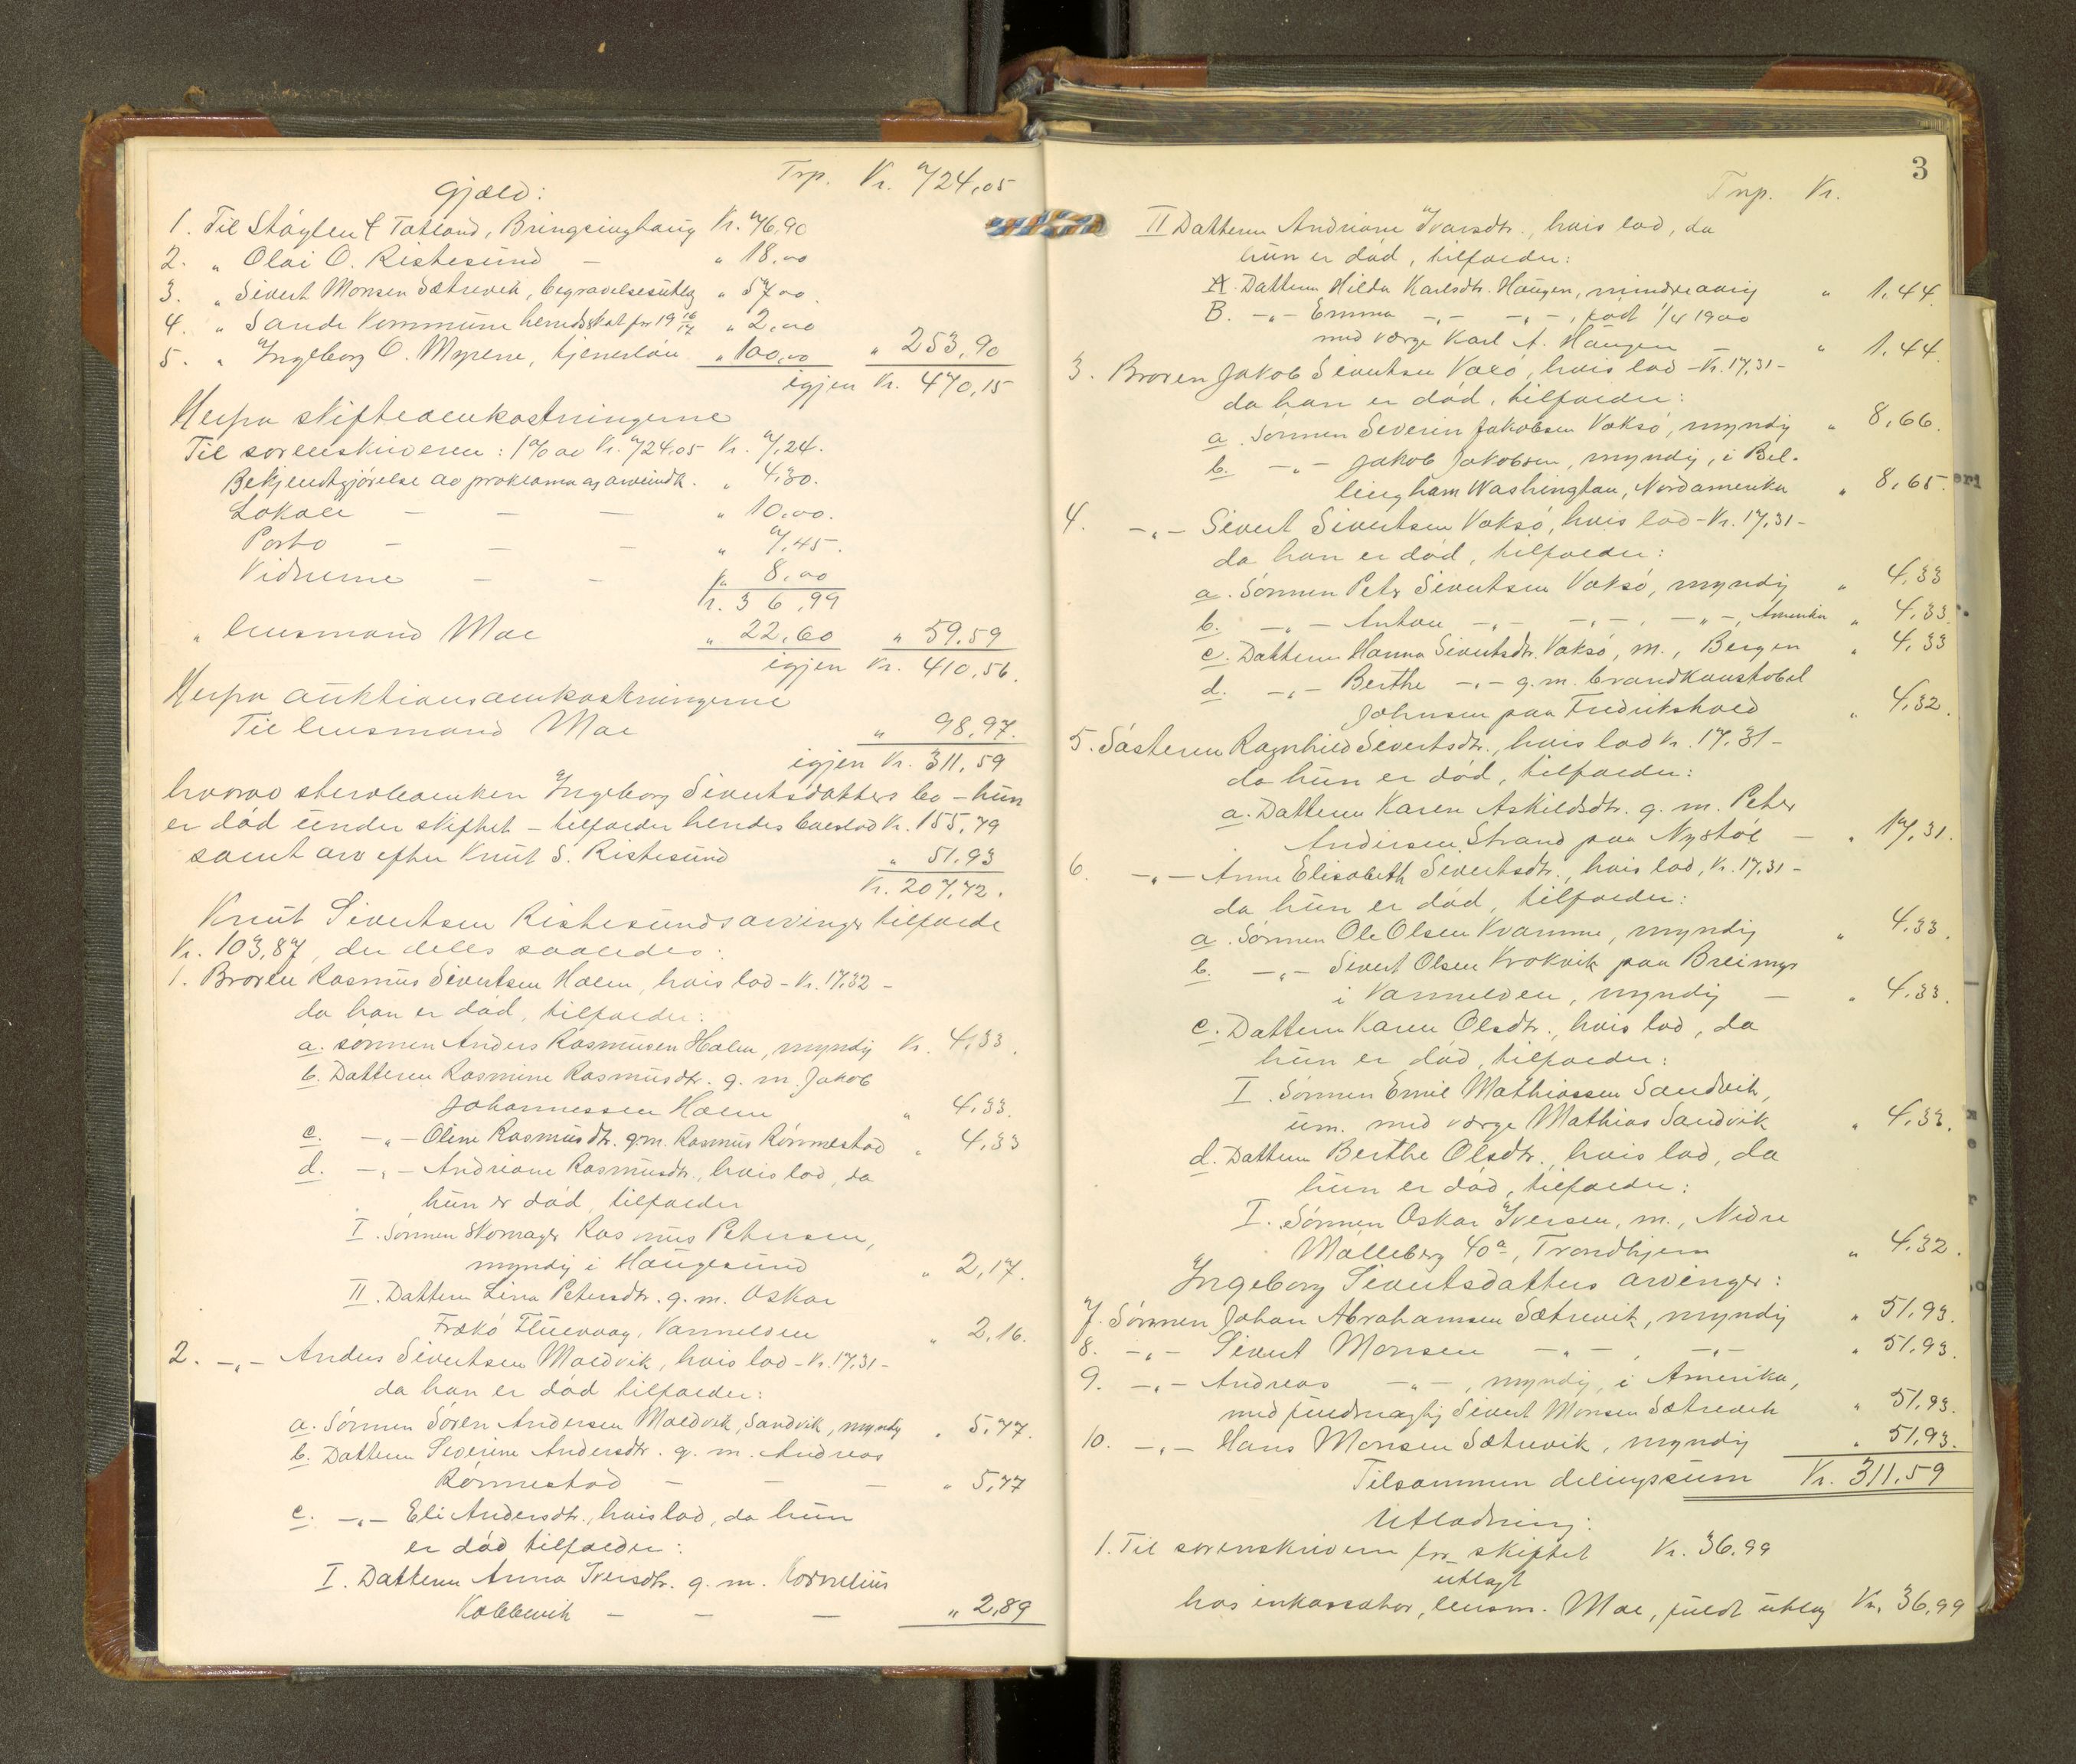 Trp. Kr. 724,05
Gjæld:
1. Til Støylen & Tatland, Bringsinghaug Kr. 76,90
2. " Olai O. Ristesund - " 18,00
3. " Sivert Monsen Sætrevik, begravelsesutlæg " 57,00
4. " Sande Kommune herredsskat for 19 16/17 " 2,00
5. " Ingeborg O. Myrene, tjenerløn " 100,00 " 253,90
igjen Kr. 470,15
Herfra skifteomkostningerne
Til sorenskriveren: 1% av Kr. 724,05 Kr. 7,24.
Bekjendtgjørelse av proklama og arveindk. " 4,30.
Lokale - - - " 10,00.
Porto - - - " 7,45.
Vidnerne - - " 8,00
Kr. 36,99
" lensmand Mae " 22,60 " 59,59
igjen Kr. 410,56.
Herfra auktionsomkostningerne
Til lensmand Mae " 98,97.
igjen Kr. 311,59
hvorav sterboenken Ingeborg Sivertsdatters bo - hun
er død under skiftet - tilfalder hendes boeslod Kr. 155,79
samt arv efter Knut S. Ristesund " 51,93
Kr. 207,72.
Knut Sivertsen Ristesunds arvinger tilfalde
Kr. 103,87, der deles saaledes:
1. Broren Rasmus Sivertsen Holm, hvis lod - Kr. 17,32 -
da han er død, tilfalder:
a. sønnen Anders Rasmusen Holm, myndig Kr. 4,33.
b. Datteren Rasmine Rasmusdtr. g. m. Jakob
Johannessen Holm " 4,33.
c. -"- Oline Rasmusdtr. g.m. Rasmus Rønnestad " 4,33
d. -"- Andriane Rasmusdtr., hvis lod, da
hun er død, tilfalder
I. Sønnen Skomager Rasmus Petersen,
myndig i Haugesund " 2,17.
II. Datteren Lina Petersdtr. g. m. Oskar
Frækø Fluevaag, Vannelven " 2,16.
2. -"- Anders Sivertsen Moldvik, hvis lod - Kr. 17,31 -
da han er død tilfalder:
a. Sønnen Søren Andersen Moldvik, Sandvik, myndig " 5,77.
b. Datteren Severine Andersdtr. g. m. Andreas
Rønnestad - - - " 5,77
c. -"- Eli Andersdtr., hvis lod, da hun
er død tilfalder:
I. Datteren Anna Iversdtr. g. m. Kornelius
Kobbevik - - - " 2,89
3
Trp. Kr.
II Datteren Andriane Ivarsdtr., hvis lod, da
hun er død, tilfalder:
A. Datteren Hilda Karlsdtr. Haugen, mindreaarig " 1,44.
B. -"- Emma -"- -"-, født 1/4 1900
med værge Karl A. Haugen " 1,44.
3. Broren Jakob Sivertsen Voksø, hvis lod - Kr. 17,31 -
da han er død, tilfalder:
a. Sønnen Severin Jakobsen Voksø, myndig " 8,66.
b. -"- Jakob Jakobsen, myndig, i Bel-
lingham Washington, Nordamerika " 8,65.
4. -"- Sivert Sivertsen Voksø, hvis lod - Kr. 17,31 -
da han er død, tilfalder:
a. Sønnen Peter Sivertsen Voksø, myndig " 4,33
b. -"- Anton -"- -"-, -"-, Amerika " 4,33.
c. Datteren Hanna Sivertsdtr. Voksø, m., Bergen " 4,33
d. -"- Berthe -"- g. m. brandkonstabel
Johnsen paa Fredrikshald " 4,32.
5. Søsteren Ragnhild Sivertsdtr., hvis lod Kr. 17,31 -
da hun er død, tilfalder:
a. Datteren Karen Askildsdtr. g. m. Peter
Andersen Strand paa Nystøl - " 17,31.
6. -"- Anne Elisabeth Sivertsdtr., hvis lod, Kr. 17,31 -
da hun er død, tilfalder:
a. Sønnen Ole Olsen Kvamme, myndig " 4,33.
b. -"- Sivert Olsen Krokvik paa Breimyr
i Vannelven, myndig - " 4,33.
c. Datteren Karen Olsdtr., hvis lod, da
hun er død, tilfalder:
I. Sønnen Emil Mathiassen Sandvik,
um. med værge Mathias Sandvik " 4,33.
d. Datteren Berthe Olsdtr., hvis lod, da
hun er død, tilfalder:
I. Sønnen Oskar Iversen, m., Nedre
Mølleberg 40a, Trondhjem " 4,32.
Ingeborg Sivertsdatters arvinger:
7. Sønnen Johan Abrahamsen Sætrevik, myndig " 51,93.
8. -"- Sivert Monsen -"-, -"- " 51,93.
9. -"- Andreas -"-, myndig, i Amerika,
med fuldmægtig Sivert Monsen Sætrevik " 51,93.
10. -"- Hans Monsen Sætrevik, myndig " 51,93.
Tilsammen delingssum Kr. 311,59
Utlodning:
1. Til sorenskriveren for skiftet Kr. 36,99
utlagt
hos inkassator, lensm. Mae, fuldt utlæg Kr. 36,99